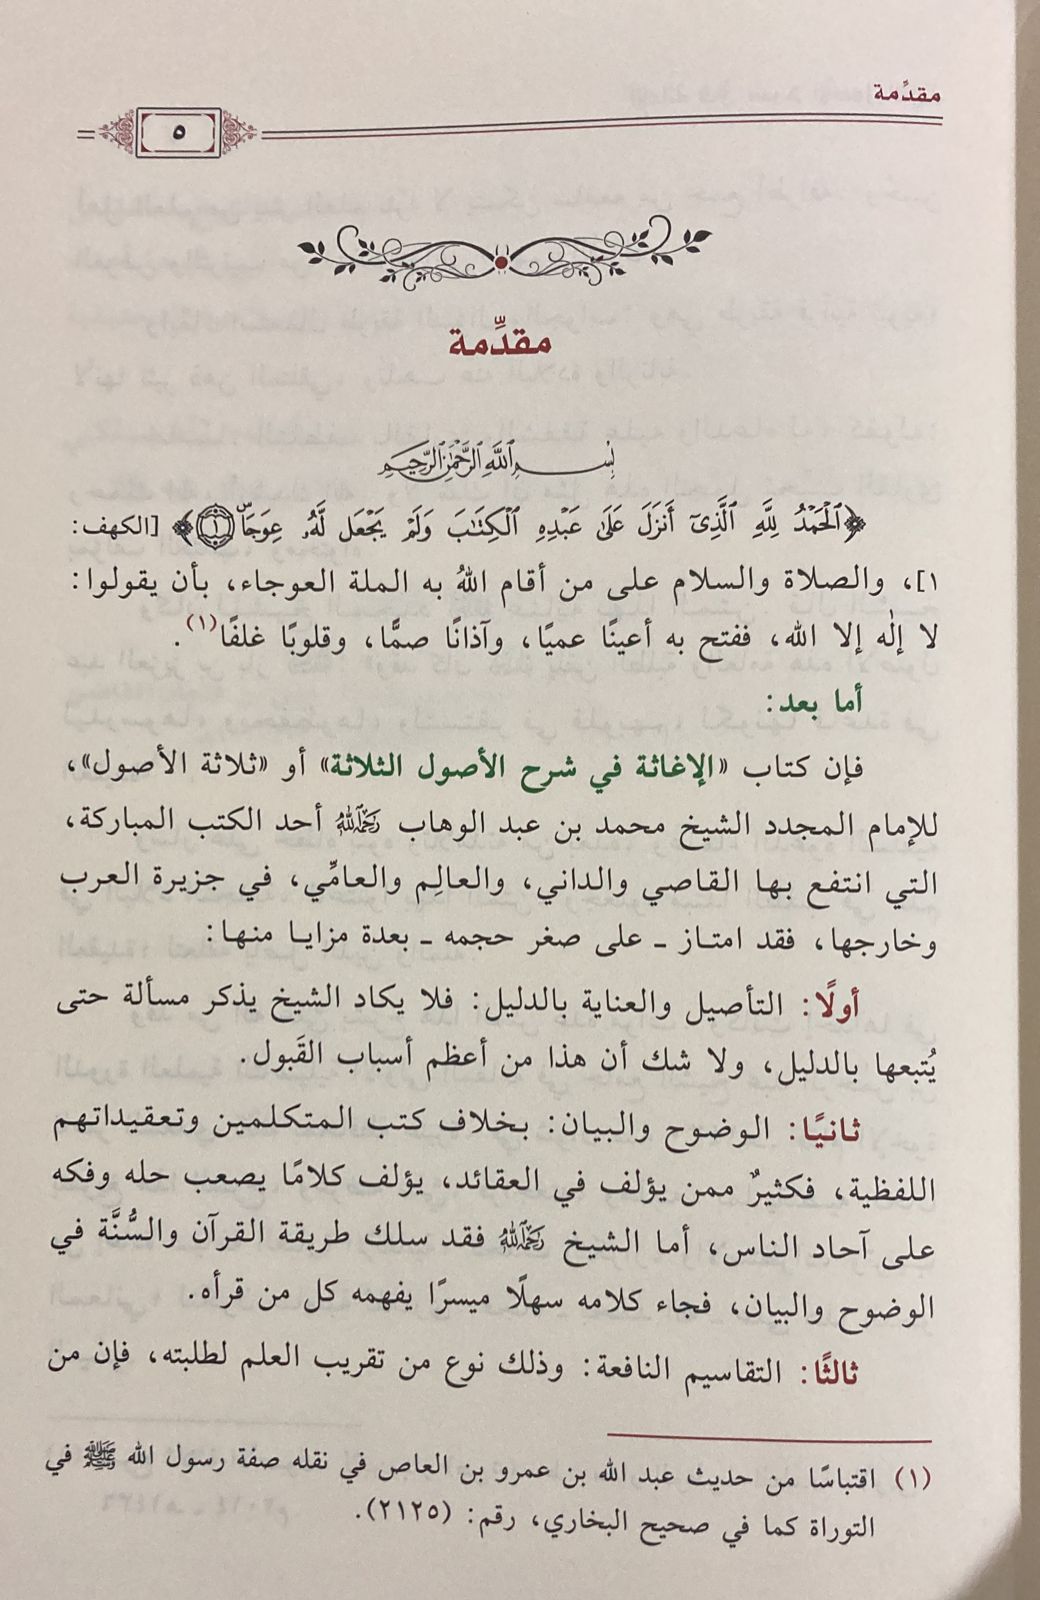 مقدِّمة
٥
مقدِّمة
بِسْمِ ٱللَّهِ ٱلرَّحْمَٰنِ ٱلرَّحِيمِ
﴿ٱلْحَمْدُ لِلَّهِ ٱلَّذِىٓ أَنزَلَ عَلَىٰ عَبْدِهِ ٱلْكِتَٰبَ وَلَمْ يَجْعَل لَّهُۥ عِوَجَاۜ ١﴾ [الكهف:
١]، والصلاة والسلام على من أقام اللهُ به الملة العوجاء، بأن يقولوا:
لا إلٰه إلا الله، ففتح به أعينًا عميًا، وآذانًا صمًّا، وقلوبًا غلفًا(١).
أما بعد:
فإن كتاب «الإغاثة في شرح الأصول الثلاثة» أو «ثلاثة الأصول»،
للإمام المجدد الشيخ محمد بن عبد الوهاب رحمه الله أحد الكتب المباركة،
التي انتفع بها القاصي والداني، والعالِم والعامِّي، في جزيرة العرب
وخارجها، فقد امتاز ـ على صغر حجمه ـ بعدة مزايا منها:
أولًا: التأصيل والعناية بالدليل: فلا يكاد الشيخ يذكر مسألة حتى
يُتبعها بالدليل، ولا شك أن هذا من أعظم أسباب القَبول.
ثانيًا: الوضوح والبيان: بخلاف كتب المتكلمين وتعقيداتهم
اللفظية، فكثيرٌ ممن يؤلف في العقائد، يؤلف كلامًا يصعب حله وفكه
على آحاد الناس، أما الشيخ رحمه الله فقد سلك طريقة القرآن والسُّنَّة في
الوضوح والبيان، فجاء كلامه سهلًا ميسرًا يفهمه كل من قرأه.
ثالثًا: التقاسيم النافعة: وذلك نوع من تقريب العلم لطلبته، فإن من
(١) اقتباسًا من حديث عبد الله بن عمرو بن العاص في نقله صفة رسول الله ﷺ في
التوراة كما في صحيح البخاري، رقم: (٢١٢٥).